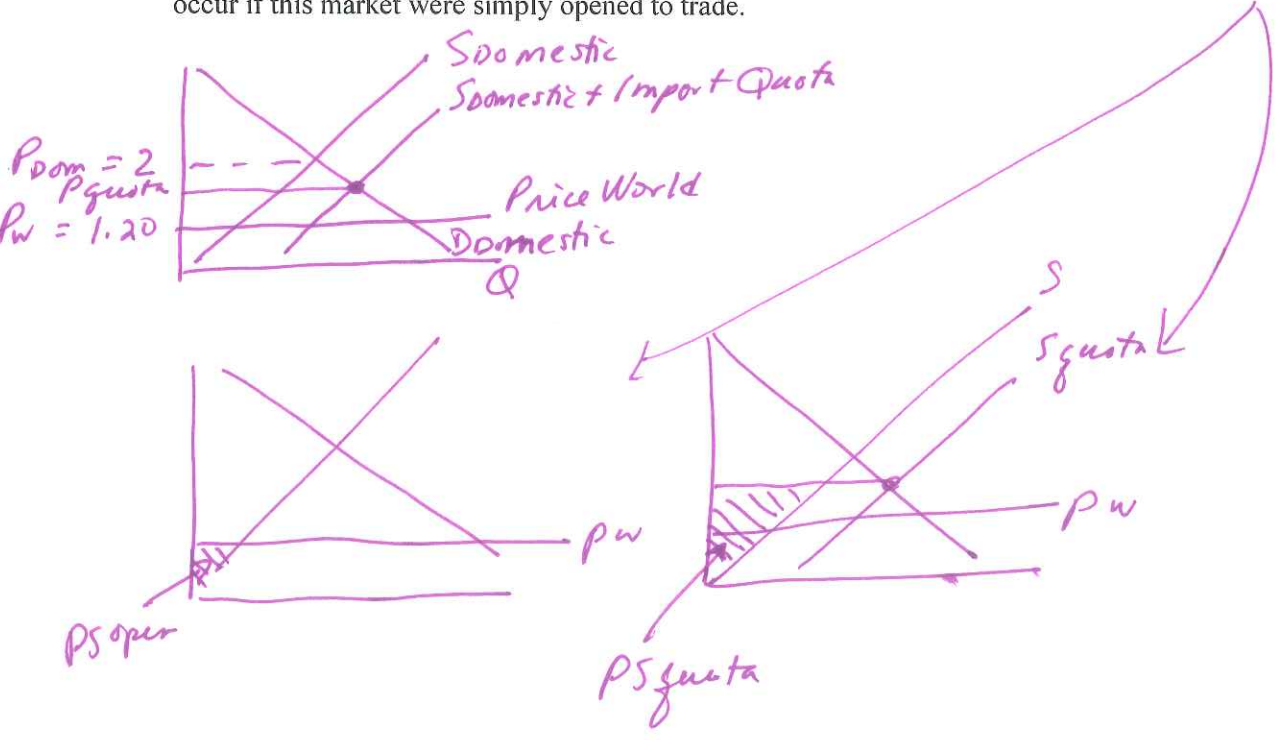 occur if this market were simply opened to trade.
SDomestic
SDomestic + Import Quota
PDom = 2
Pquota
Pw = 1.20
Price World
Domestic
Q
S
Squota
Pw
Pw
PS open
PSquota